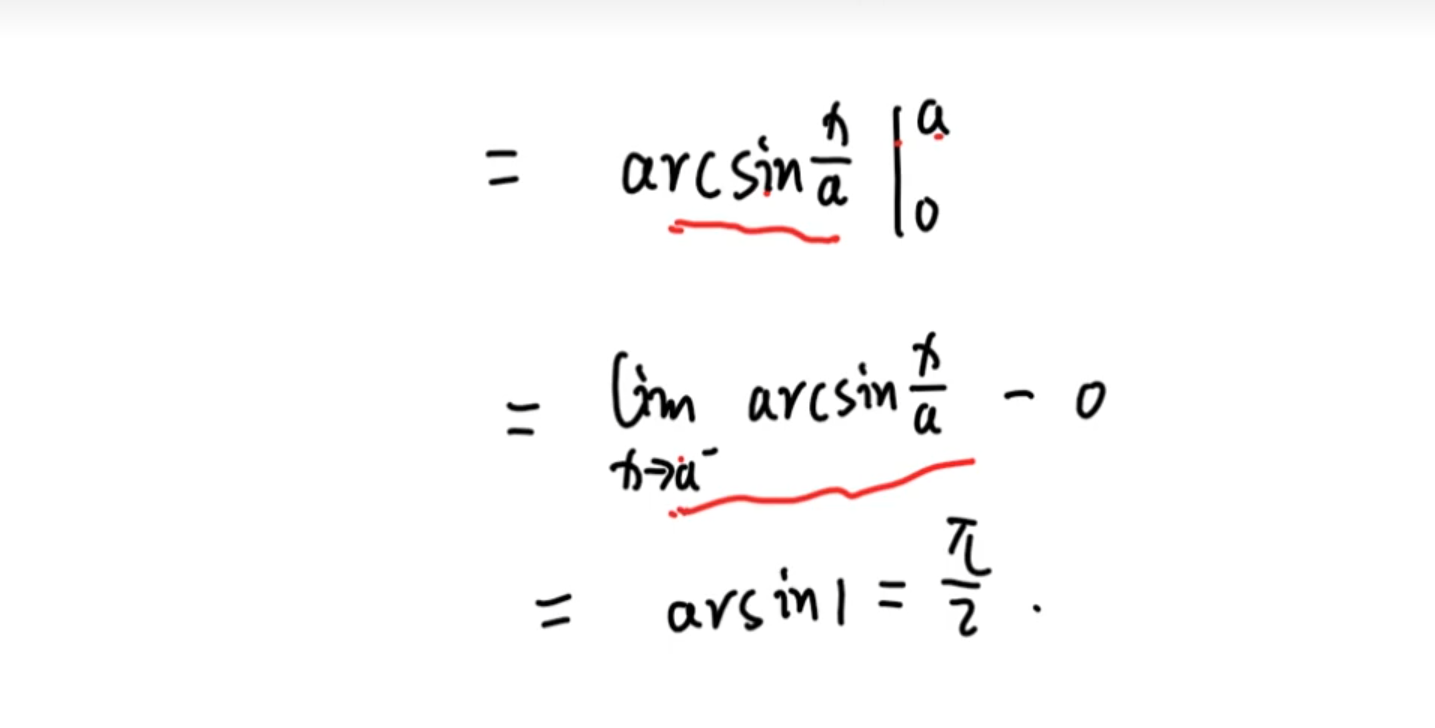 = arcsin x/a |₀ᵃ
= lim x→a⁻ arcsin x/a - 0
= arsin1 = π/2 .